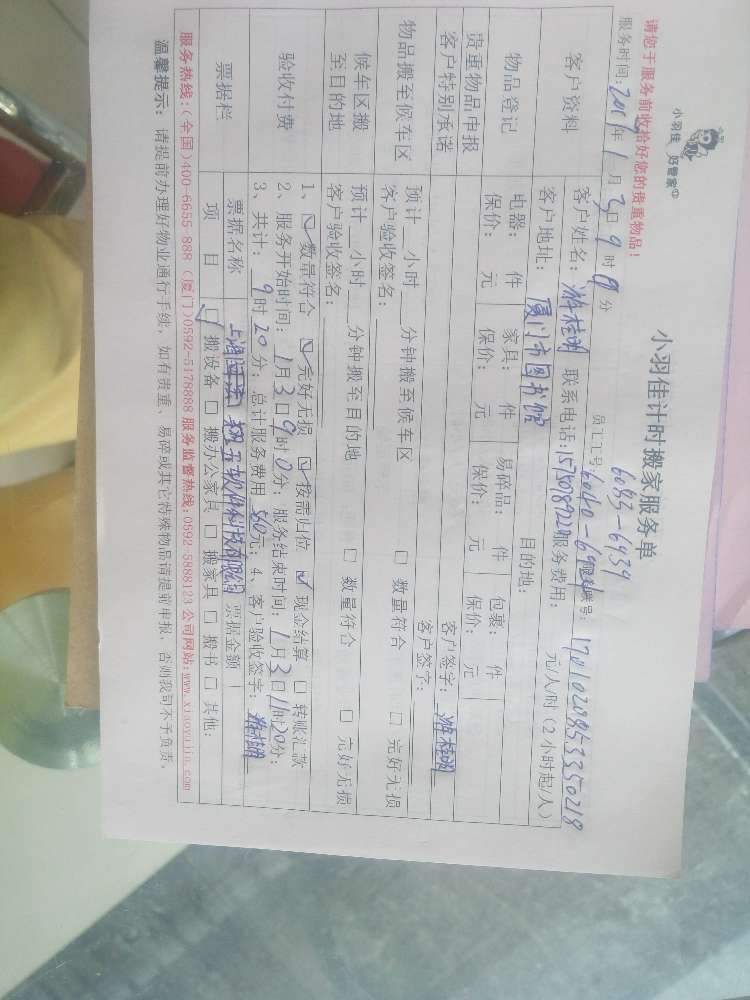 小羽佳 好管家
小羽佳计时搬家服务单
请您于服务前收拾好您的贵重物品！
6033-6939
服务时间: 年 1 月 3 日 9 时 0 分 员工工号: 号: 1701028953350218
客户资料 客户姓名: 游桂 联系电话: 服务费用: 元/人/时（2小时起/人）
客户地址: 厦门市图书馆 目的地:
物品登记 电器: 件 家具: 件 易碎品: 件 包裹: 件
保价: 元 保价: 元 保价: 元 保价: 元
贵重物品申报
客户特别承诺 客户签字: 游桂
物品搬至候车区 预计__小时__分钟搬至候车区 □ 数量符合 □ 完好无损
客户验收签名: 客户签字:
候车区搬至目的地 预计__小时__分钟搬至目的地 □ 数量符合 □ 完好无损
客户验收签名:
验收付费 1、☑ 数量符合 ☑ 完好无损 ☑ 按需归位 ☑ 现金结算 □ 转账汇款
2、服务开始时间: 1月3日9时0分; 服务结束时间: 1月3日11时20分;
3、共计: 9时20分; 总计服务费用 560元; 4、客户验收签字:
票据栏 票据名称 上海 软件科技有限公司 票据金额
项 目 ☑ 搬设备 □ 搬办公家具 □ 搬家具 □ 搬书 □ 其他:
服务热线:(全国)400-6655 888 (厦门)0592-5178888 服务监督热线:0592-5888123 公司网站:www.xiaoyujia.com
温馨提示: 请提前办理好物业通行手续, 如有贵重、易碎或其它特殊物品请提前申报, 否则我司不予负责。